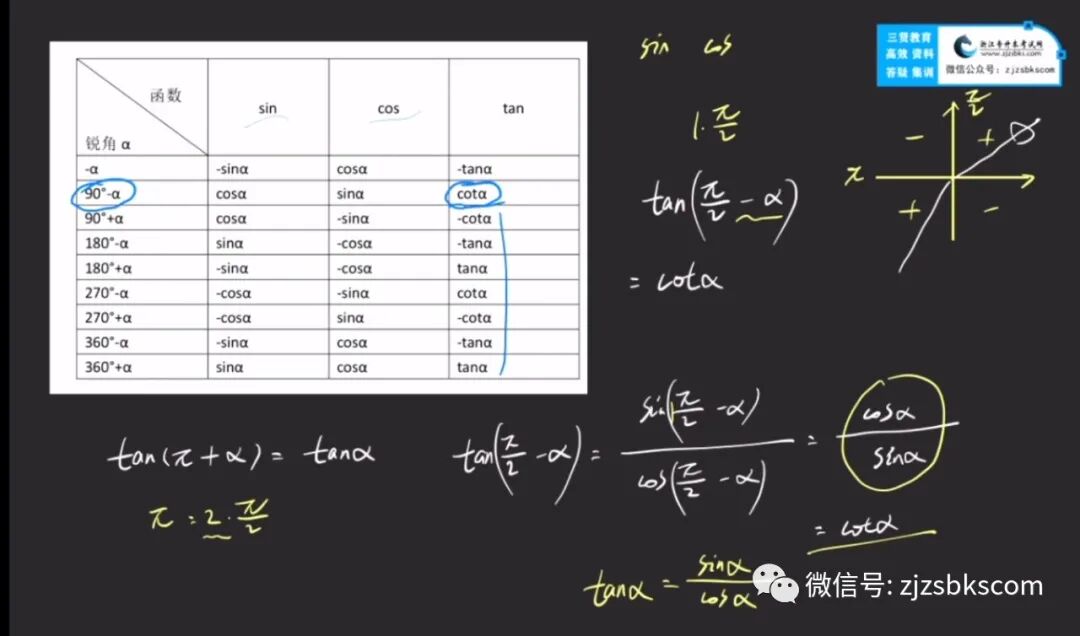 函数 sin cos tan
锐角 α
-α -sinα cosα -tanα
90°-α cosα sinα cotα
90°+α cosα -sinα -cotα
180°-α sinα -cosα -tanα
180°+α -sinα -cosα tanα
270°-α -cosα -sinα cotα
270°+α -cosα sinα -cotα
360°-α -sinα cosα -tanα
360°+α sinα cosα tanα
sin cos
1·π/2
tan(π/2 -α)
= cotα
三贤教育
高效 资料
答疑 集训
浙江专升本考试网
www.zjzsbks.com
微信公众号：zjzsbkscom
π/2
- +
π
+ -
tan(π+α)= tanα
π = 2·π/2
tan(π/2 -α) = sin(π/2 -α)/cos(π/2 -α) = cosα/sinα
= cotα
tanα = sinα/cosα
微信号: zjzsbkscom